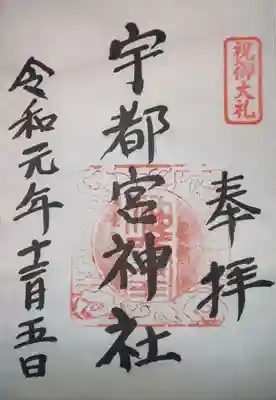 祝御大礼
奉拝
宇都宮神社
令和元年十一月五日